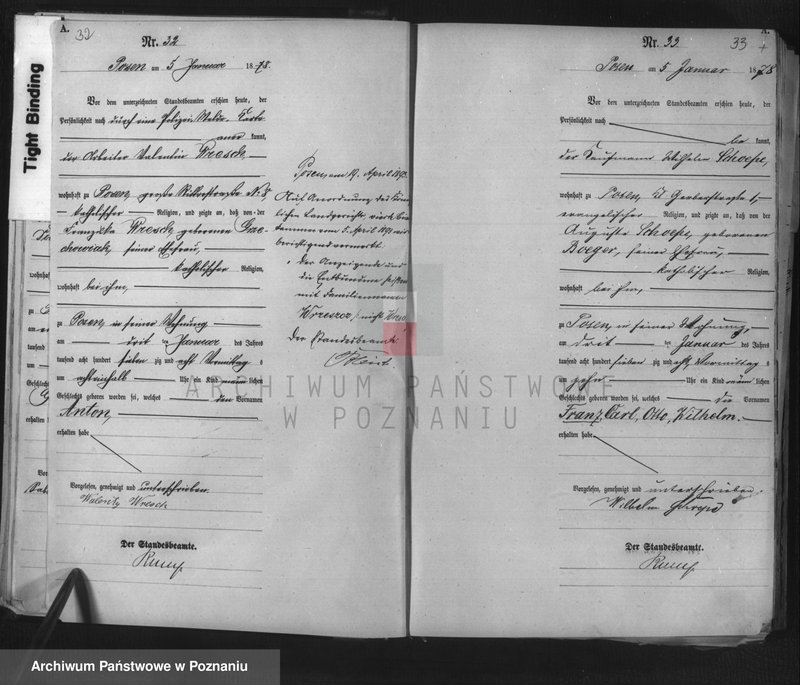 Tight Binding
A.
32
Nr. 32
Posen am 5 Januar 1878.
Vor dem unterzeichneten Standesbeamten erschien heute, der
Persönlichkeit nach durch eine Polizei Melde-Karte
kannt,
der Arbeiter Valentin Wresch,
wohnhaft zu Posen, große Ritterstraße N.
katholischer Religion, und zeigte an, daß von der
Franziska Wresch geborenen
seiner Ehefrau,
katholischer Religion,
wohnhaft bei ihm,
zu Posen, in seiner Wohnung
am drei ten Januar des Jahres
tausend acht hundert sieben zig und acht Vormittags
um achteinhalb Uhr ein Kind männlichen
Geschlechts geboren worden sei, welches den Vornamen
Anton,
erhalten habe
Vorgelesen, genehmigt und unterschrieben
Walenty Wresch
Der Standesbeamte.
Posen, am 17. April 1893.
Auf Anordnung des König-
lichen Landgerichts wird
vom 5. April 1893
berichtigend vermerkt,
der Anzeigende und
die Entbundene
mit Familiennamen
Wrzeszcz, nicht Wresch
Der Standesbeamte
Nr. 33
33
Posen am 5 Januar 1878
Vor dem unterzeichneten Standesbeamten erschien heute, der
Persönlichkeit nach
be kannt,
der Kaufmann Wilhelm Schoepe,
wohnhaft zu Posen, Gerberstraße
evangelischer Religion, und zeigte an, daß von der
Auguste Schoepe, geborenen
Boeger, seiner Ehefrau,
katholischer Religion,
wohnhaft bei ihm,
zu Posen, in seiner Wohnung,
am drit ten Januar des Jahres
tausend acht hundert sieben zig und acht, Vormittags
um zehn Uhr ein Kind männlichen
Geschlechts geboren worden sei, welches die Vornamen
Franz, Carl, Otto, Wilhelm.
erhalten habe
Vorgelesen, genehmigt und unterschrieben.
Wilhelm Schoepe
Der Standesbeamte.
ARCHIWUM PAŃSTWOWE
W POZNANIU
Archiwum Państwowe w Poznaniu